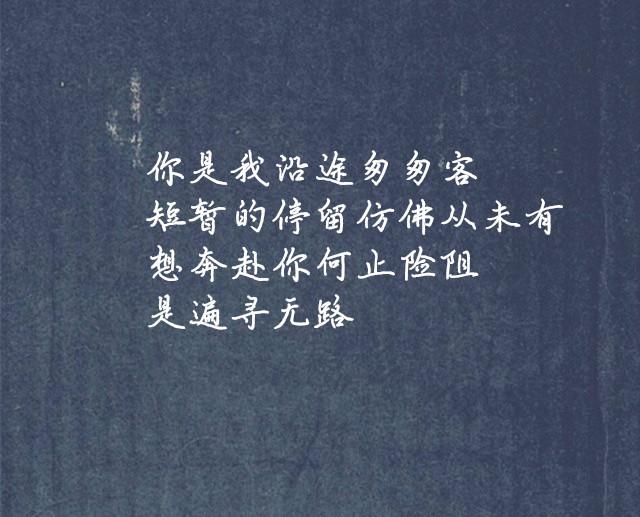 你是我沿途匆匆客
短暂的停留仿佛从未有
想奔赴你何止险阻
是遍寻无路